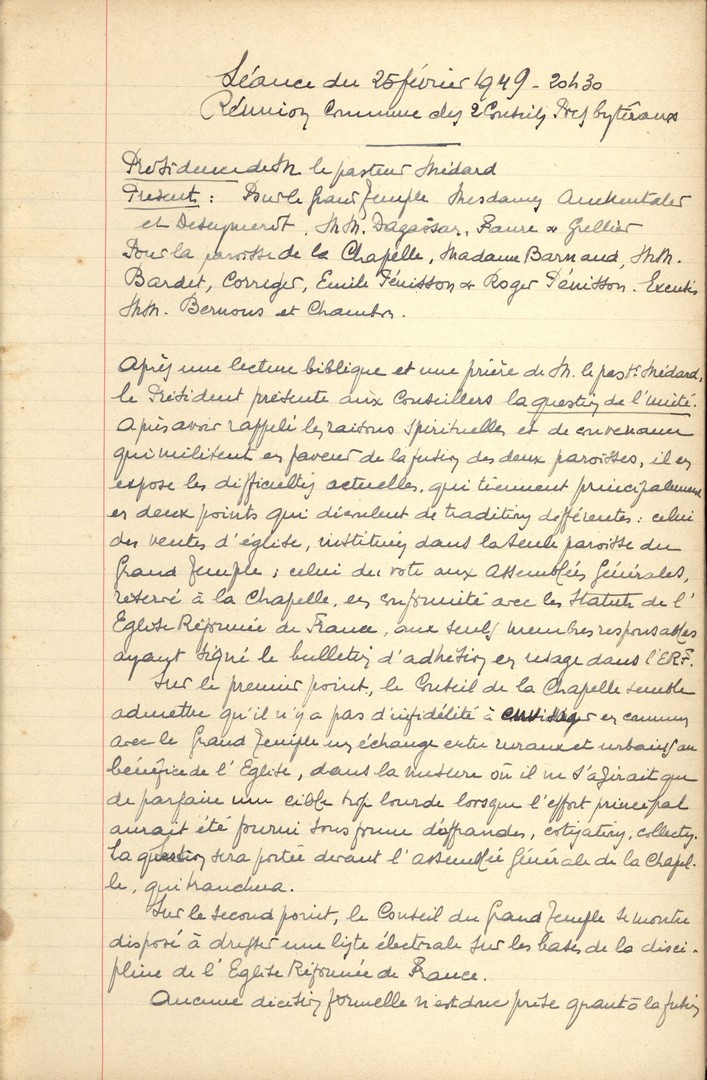 Séance du 25 février 1949 - 20h30
Réunion Commune des 2 Conseils Presbytéraux
Présidence de M. le pasteur Médard
Présent : Pour le Grand Temple Mesdames
et MM. Dagassan, Faure & Grellier
Pour la paroisse de la Chapelle, Madame Barnaud, MM.
Bardet, Correger, Emile Pénisson & Roger Pénisson. Excusés
MM. Bernous et Chambon.
Après une lecture biblique et une prière de M. le past. Médard,
le Président présente aux Conseillers la question de l'Unité.
Après avoir rappelé les raisons spirituelles et de convenance
qui militent en faveur de la fusion des deux paroisses, il en
expose les difficultés actuelles, qui tiennent principalement
en deux points qui découlent de traditions différentes : celui
des ventes d'église, instituées dans la seule paroisse du
Grand Temple ; celui du vote aux Assemblées Générales,
réservé à la Chapelle, en conformité avec les Statuts de l'
Eglise Réformée de France, aux seuls membres responsables
ayant signé le bulletin d'adhésion en usage dans l'ERF.
Sur le premier point, le Conseil de la Chapelle semble
admettre qu'il n'y a pas d'infidélité à envisager en commun
avec le Grand Temple un échange entre ruraux et urbains au
bénéfice de l'Eglise, dans la mesure où il ne s'agirait que
de parfaire une cible trop lourde lorsque l'effort principal
aurait été fourni sous forme d'offrandes, cotisations, collectes.
La question sera portée devant l'assemblée Générale de la Chapel-
le, qui tranchera.
Sur le second point, le Conseil du Grand Temple se montre
disposé à dresser une liste électorale sur les bases de la disci-
pline de l'Eglise Réformée de France.
Aucune décision formelle n'est donc prise quant à la fusion